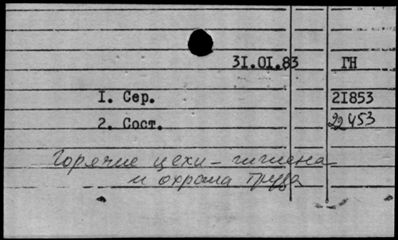 31.01.83 ГН
1. Сер. 21853
2. Сост. 22453
Горячие цехи – гигиена
и охрана труда